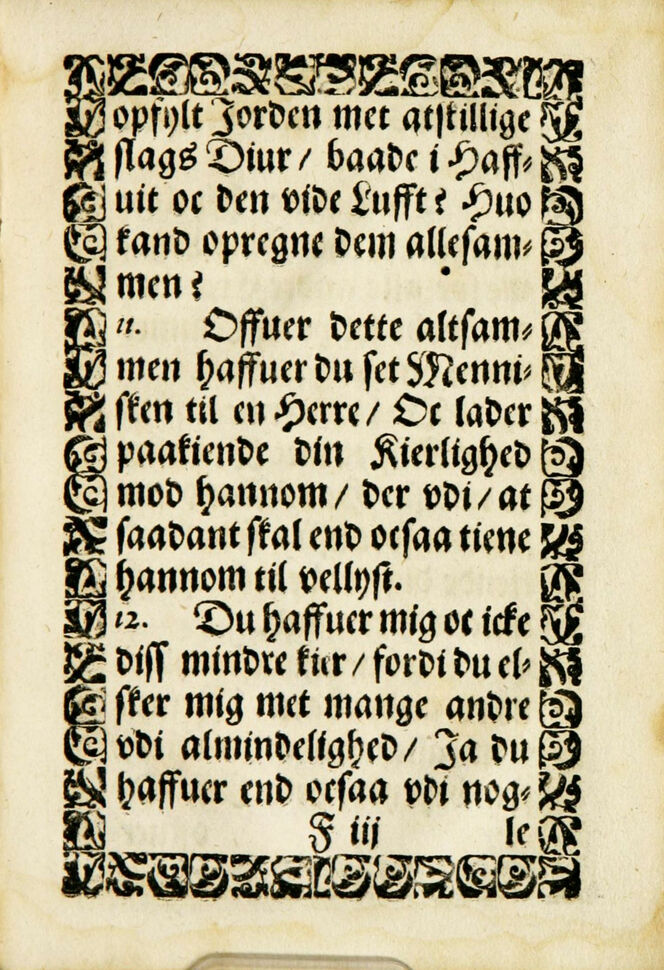 opfylt Jorden met atskillige
slags Diur / baade i Haff⸗
uit oc den vide Lufft? Huo
kand opregne dem allesam⸗
men?
11. Offuer dette altsam⸗
men haffuer du set Menni⸗
sken til en Herre / Oc lader
paakiende din Kierlighed
mod hannom / der vdi / at
saadant skal end ocsaa tiene
hannom til vellyst.
12. Du haffuer mig oc icke
diss mindre kier / fordi du el⸗
sker mig met mange andre
vdi almindelighed / Ja du
haffuer end ocsaa vdi nog⸗
F iij le